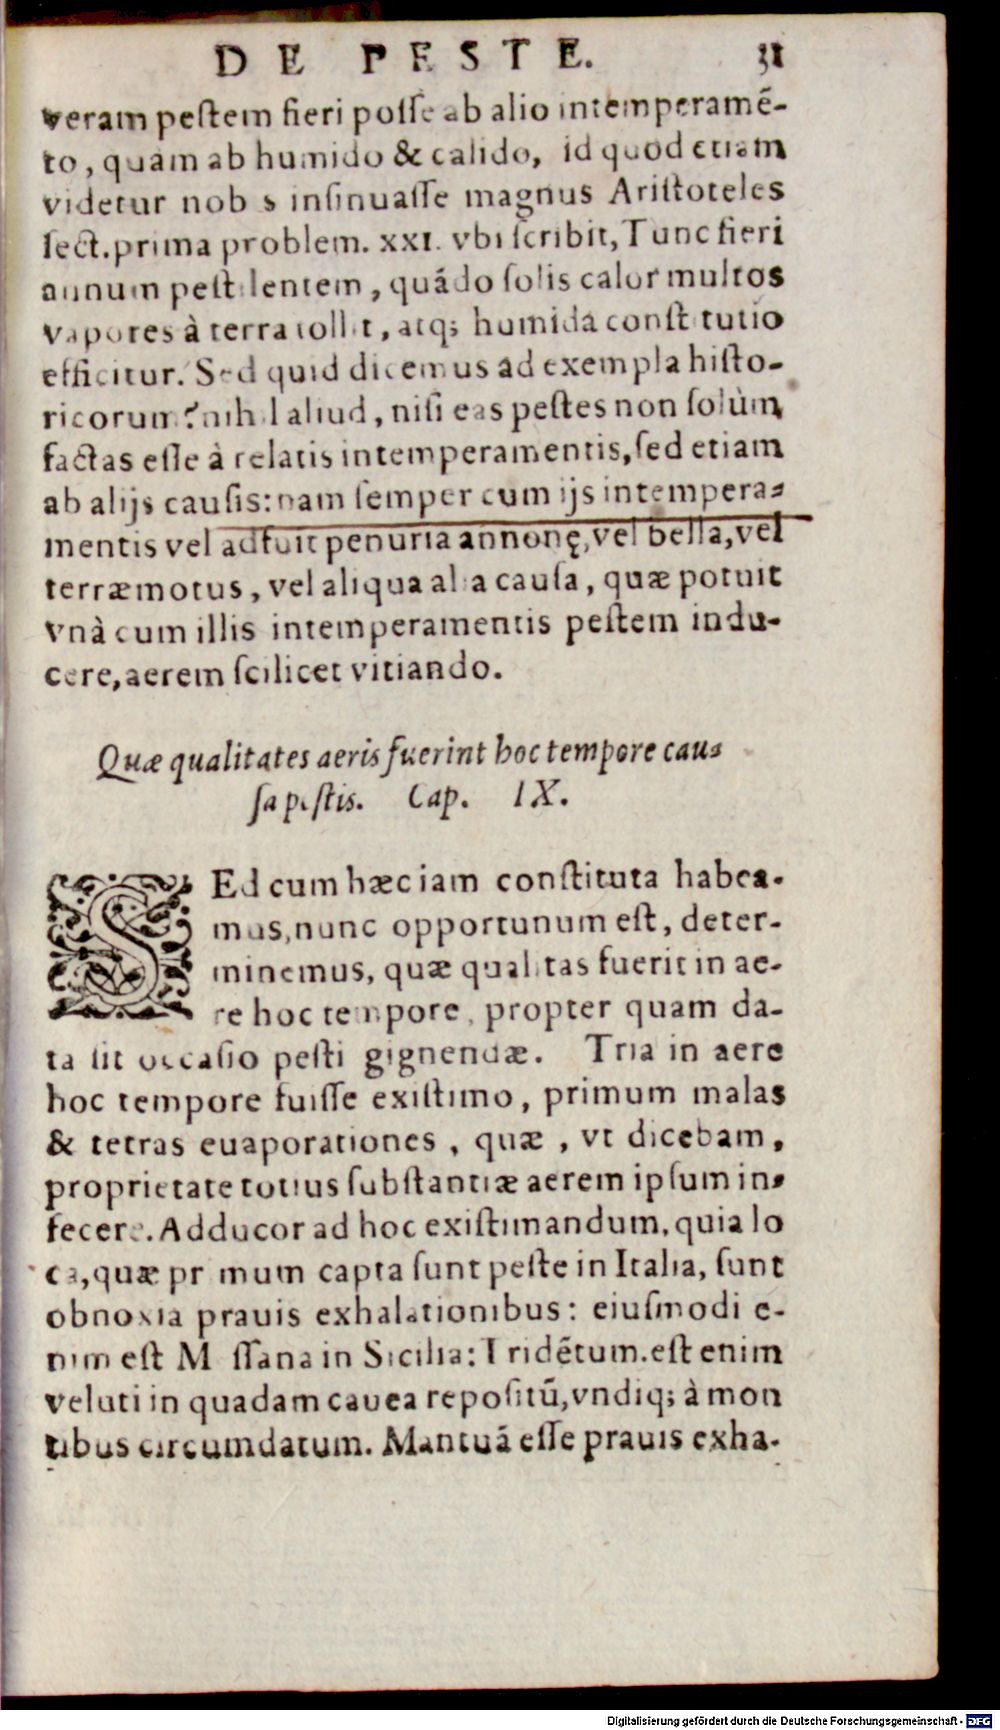 DE PESTE. 31
veram peſtem fieri poſſe ab alio intemperamē-
to, quàm ab humido & calido, id quod etiam
videtur nobis inſinuaſſe magnus Ariſtoteles
ſect. prima problem. XXI. vbi ſcribit, Tunc fieri
annum peſtilentem, quādo ſolis calor multos
vapores à terra tollit, atq; humida conſtitutio
efficitur. Sed quid dicemus ad exempla hiſto-
ricorum? nihil aliud, niſi eas peſtes non ſolùm
factas eſſe à relatis intemperamentis, ſed etiam
ab alijs cauſis: nam ſemper cum ijs intempera-
mentis vel adfuit penuria annonę, vel bella, vel
terræmotus, vel aliqua alia cauſa, quæ potuit
vnà cum illis intemperamentis peſtem indu-
cere, aerem ſcilicet vitiando.
Quæ qualitates aeris fuerint hoc tempore cau-
ſa peſtis. Cap. IX.
SEd cum hæc iam conſtituta habea-
mus, nunc opportunum eſt, deter-
minemus, quæ qualitas fuerit in ae-
re hoc tempore, propter quam da-
ta ſit occaſio peſti gignendæ. Tria in aere
hoc tempore fuiſſe exiſtimo, primum malas
& tetras euaporationes, quæ, vt dicebam,
proprietate totius ſubſtantiæ aerem ipſum in-
fecere. Adducor ad hoc exiſtimandum, quia lo
ca, quæ primum capta ſunt peſte in Italia, ſunt
obnoxia prauis exhalationibus: eiuſmodi e-
nim eſt Meſſana in Sicilia: Tridētum. eſt enim
veluti in quadam cauea repoſitū, vndiq; à mon
tibus circumdatum. Mantuā eſſe prauis exha-
Digitalisierung gefördert durch die Deutsche Forschungsgemeinschaft - DFG